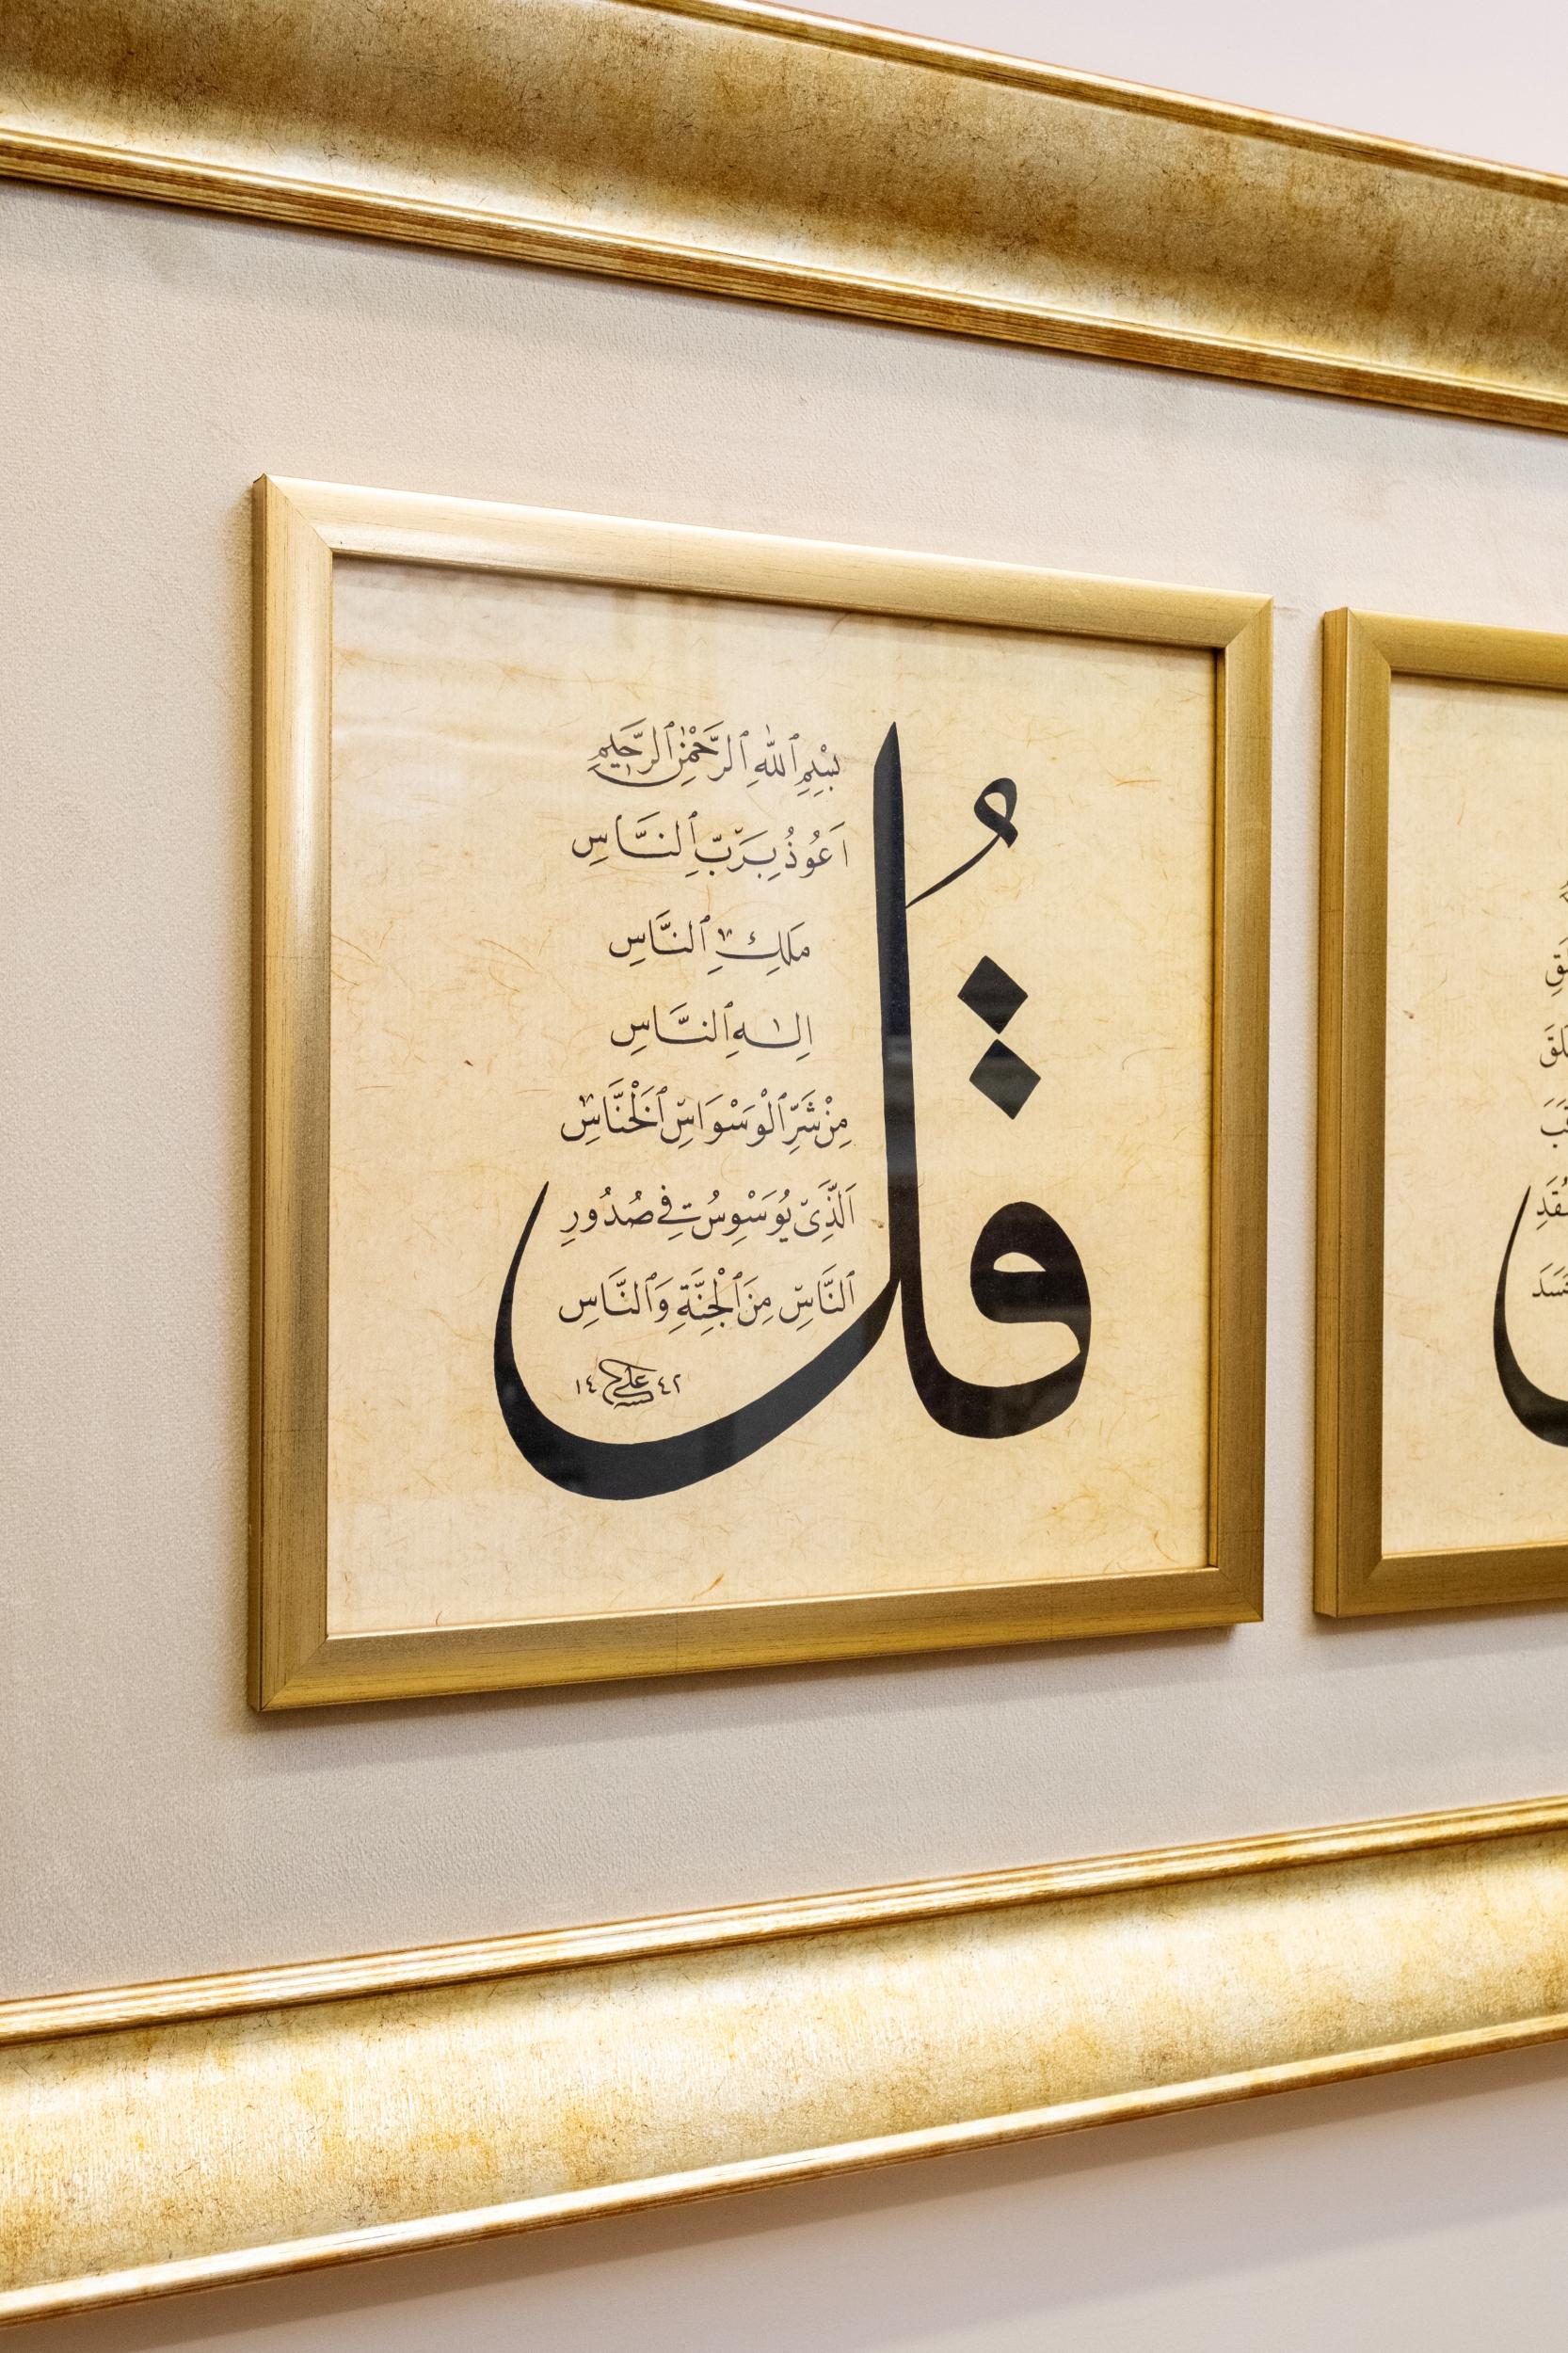 قُل
بِسْمِ ٱللّٰهِ ٱلرَّحْمٰنِ ٱلرَّحِيمِ
اَعُوذُ بِرَبِّ ٱلنَّاسِ
مَلِكِ ٱلنَّاسِ
اِلٰهِ ٱلنَّاسِ
مِنْ شَرِّ ٱلْوَسْوَاسِ ٱلْخَنَّاسِ
اَلَّذِى يُوَسْوِسُ فِي صُدُورِ
ٱلنَّاسِ مِنَ ٱلْجِنَّةِ وَٱلنَّاسِ
١٤ علي ٤٢
لَقَ